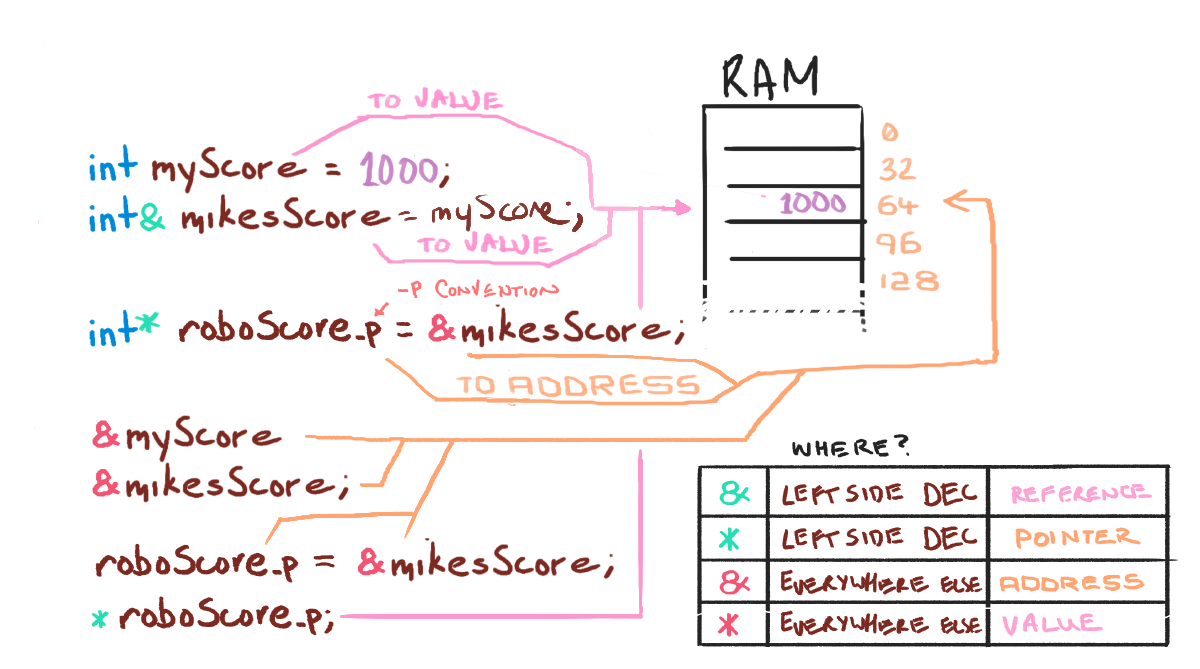 RAM
TO VALUE
int myScore = 1000;
int& mikesScore = myScore;
TO VALUE
1000
0
32
64
96
128
-P CONVENTION
int* roboScore_p = &mikesScore;
TO ADDRESS
&myScore
&mikesScore;
roboScore_p = &mikesScore;
* roboScore_p;
WHERE?
& LEFT SIDE DEC REFERENCE
* LEFT SIDE DEC POINTER
& EVERYWHERE ELSE ADDRESS
* EVERYWHERE ELSE VALUE